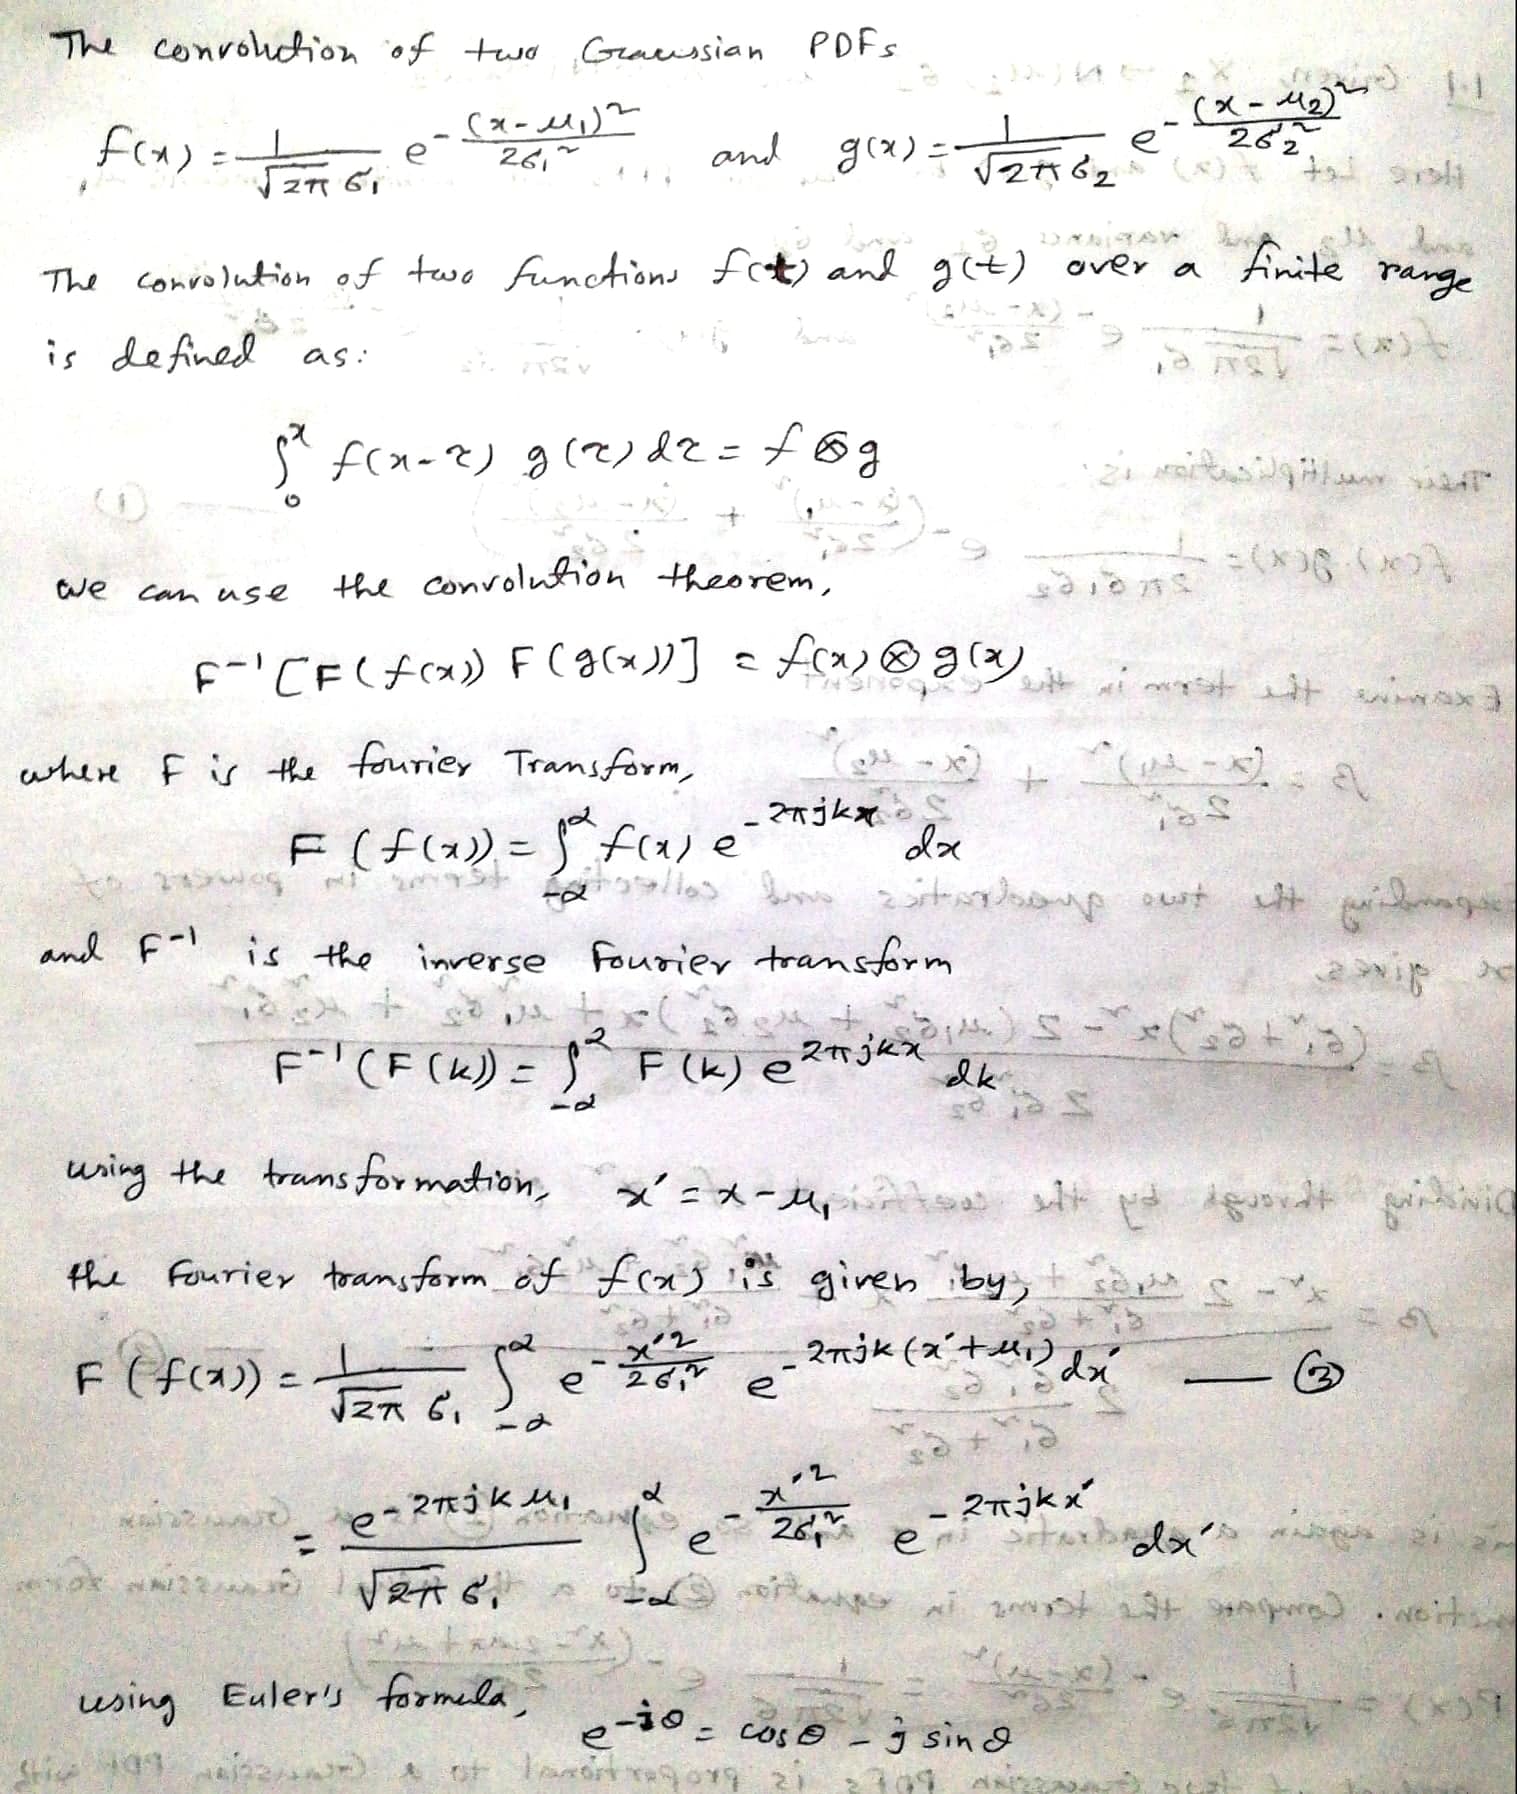 The convolution of two Gaussian PDFs
f(x) = 1/(√2π σ₁) e^(-(x-μ₁)²/2σ₁²) and g(x) = 1/(√2π σ₂) e^(-(x-μ₂)²/2σ₂²)
The convolution of two functions f(t) and g(t) over a finite range
is defined as:
∫₀^x f(x-τ) g(τ) dτ = f ⊗ g
we can use the convolution theorem,
F⁻¹[F(f(x)) F(g(x))] = f(x) ⊗ g(x)
where F is the fourier Transform,
F(f(x)) = ∫_{-∞}^{∞} f(x) e^(-2πjkx) dx
and F⁻¹ is the inverse Fourier transform
F⁻¹(F(k)) = ∫_{-∞}^{∞} F(k) e^(2πjkx) dk
using the transformation, x' = x - μ₁
the Fourier transform of f(x) is given by,
F(f(x)) = 1/(√2π σ₁) ∫_{-∞}^{∞} e^(-x'²/2σ₁²) e^(-2πjk(x'+μ₁)) dx' — ③
= e^(-2πjkμ₁)/(√2π σ₁) ∫_{-∞}^{∞} e^(-x'²/2σ₁²) e^(-2πjkx') dx'
using Euler's formula,
e^(-jθ) = cosθ - j sinθ